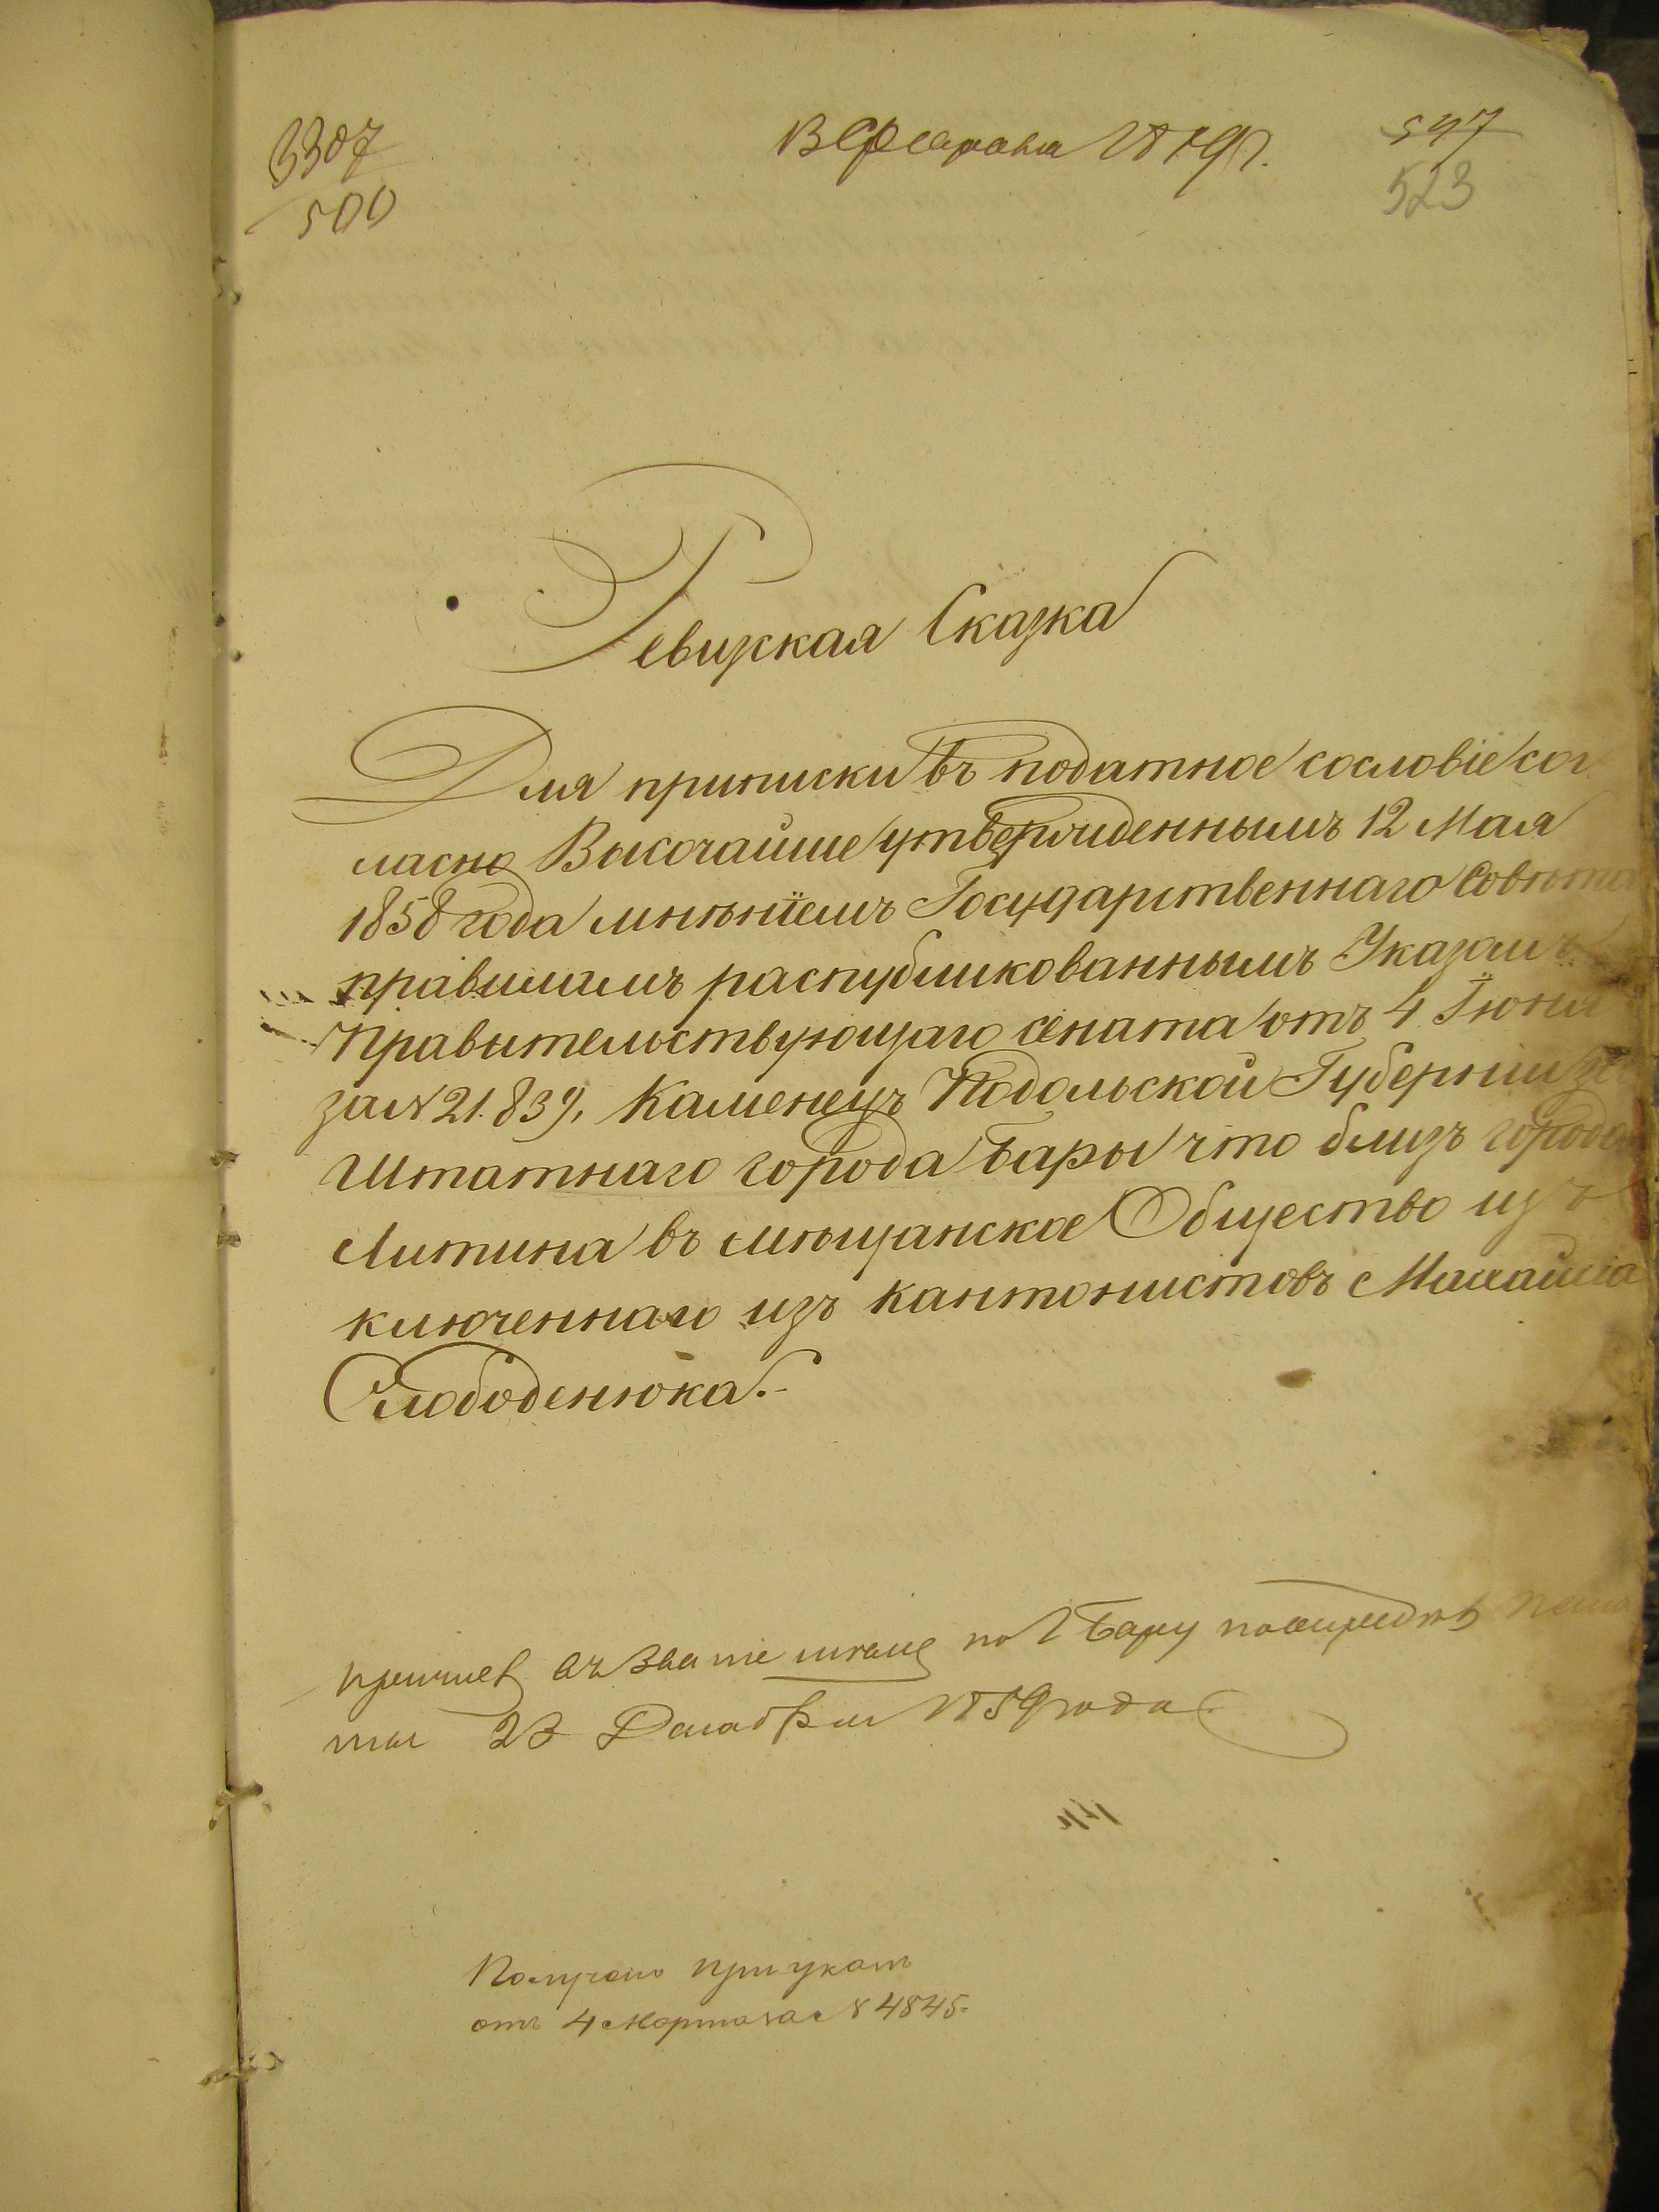 3307
500
В Февраля 1859 г.
597
523
Ревизкая Сказка
Для приписки въ податное сословіе сог
ласно Высочайше утвержденнымъ 12 Мая
1858 года мнѣніемъ Государственнаго Совѣта
правиламъ распубликованнымъ Указамъ
Правительствующаго сената отъ 4 Іюня
за N 21.839, Каменецъ Подольской Губерніи
Штатнаго города Бары что близъ города
Литина въ мѣщанское Общество из
ключеннаго изъ кантонистовъ
Слободенюка.-
въ званіе по г Бару
23 Декабря 1859 года
Получено при указѣ
отъ 4 Марта за N 4845.